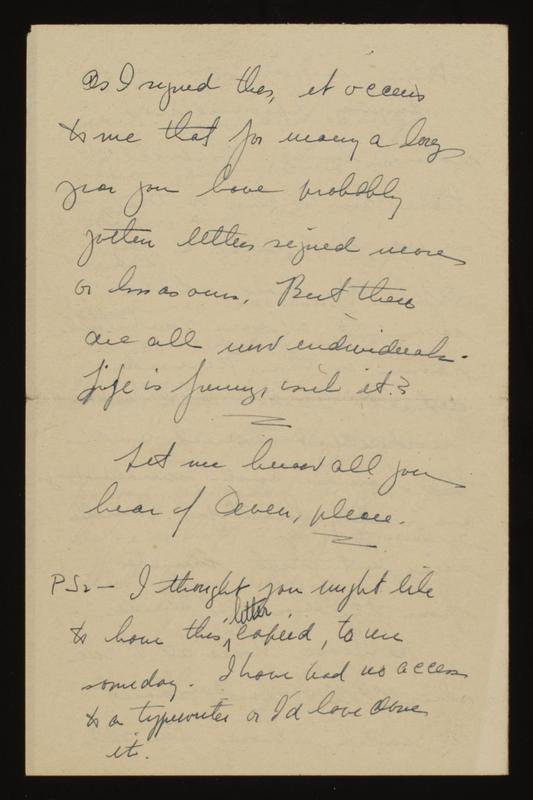 As I signed this, it occurs
to me that for many a long
year you have probably
gotten letters signed more
or less as ours. But these
are all new individuals.
Life is funny, isn't it?
Let me know all you
hear of Owen, please.
PS2 — I thought you might like
to have this letter copied, to use
someday. I have had no access
to a typewriter or I'd love done
it.